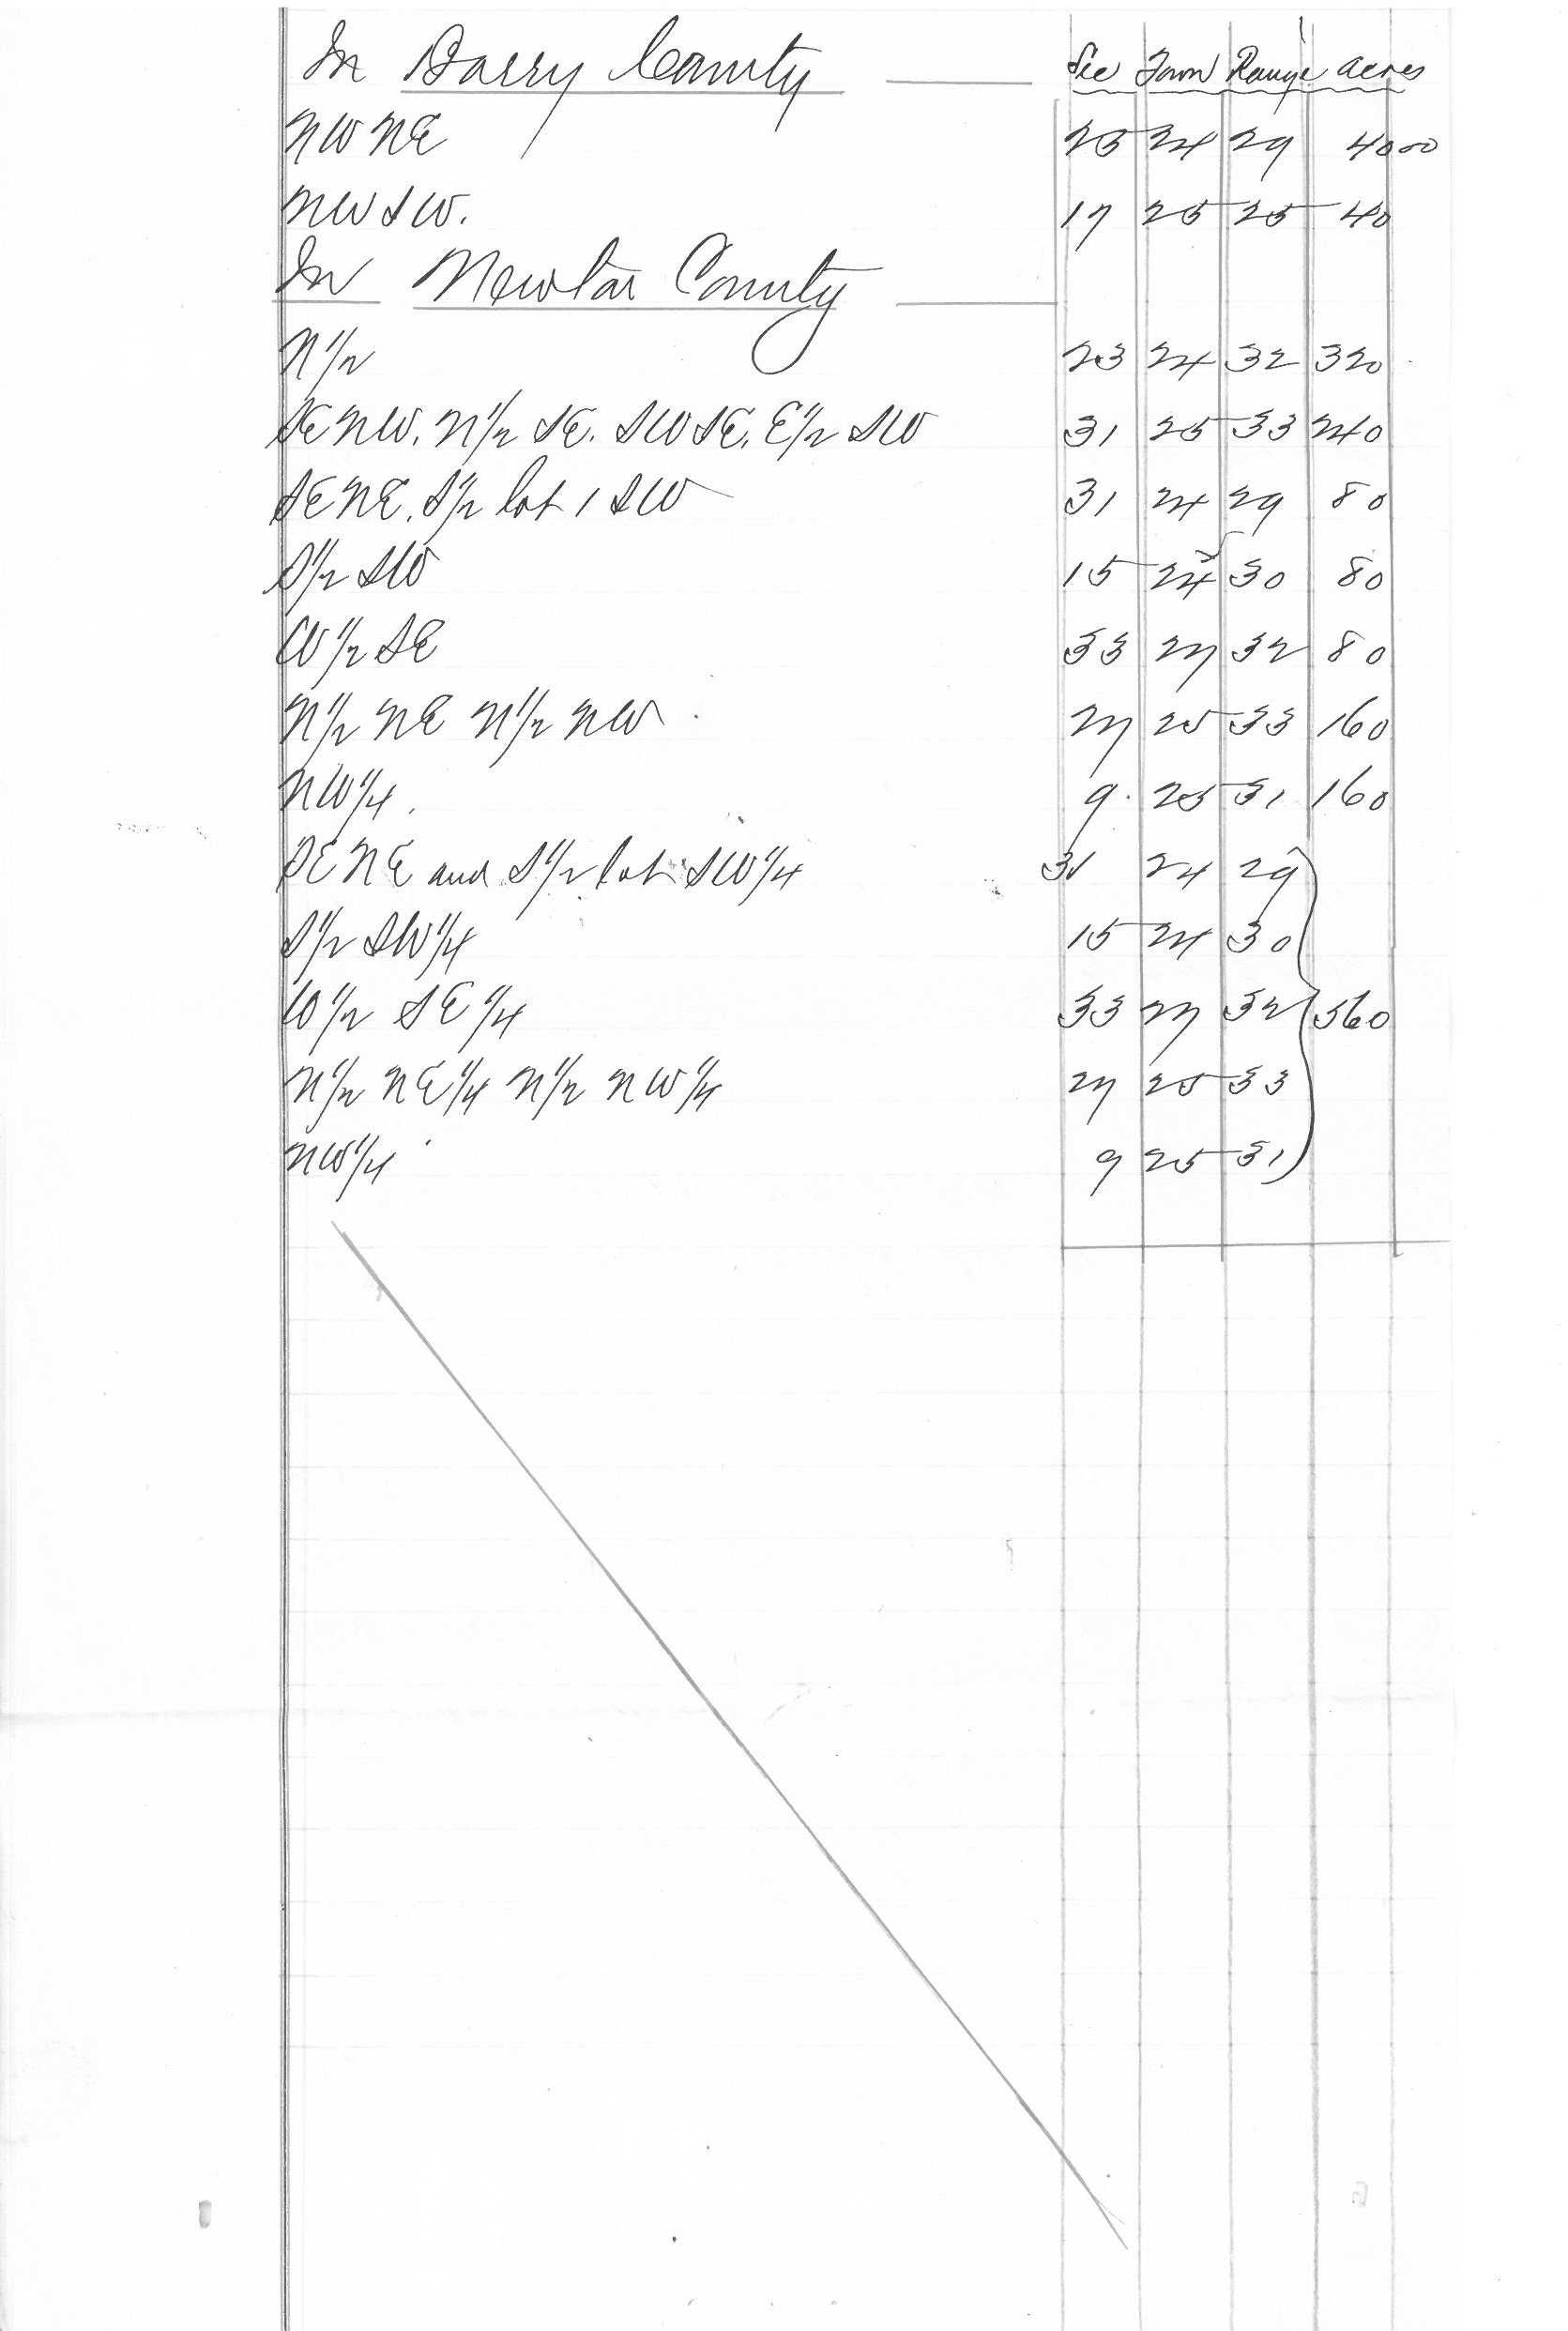 In Barry County Sec Town Range acres
NW NE 25 24 29 40 00
NW SW. 17 25 25 40
In Newton County
N 1/2 23 24 32 320
SE NW. N 1/2 SE. SW SE. E 1/2 SW 31 25 33 240
SE NE. S 1/2 lot 1 SW 31 24 29 80
S 1/2 SW 15 24 30 80
W 1/2 SE 33 27 32 80
N 1/2 NE N 1/2 NW 27 25 33 160
NW 1/4. 9 25 31 160
SE NE and S 1/2 lot SW 1/4 31 24 29
S 1/2 SW 1/4 15 24 30
W 1/2 SE 1/4 33 27 32 560
N 1/2 NE 1/4 N 1/2 NW 1/4 27 25 33
NW 1/4 9 25 31